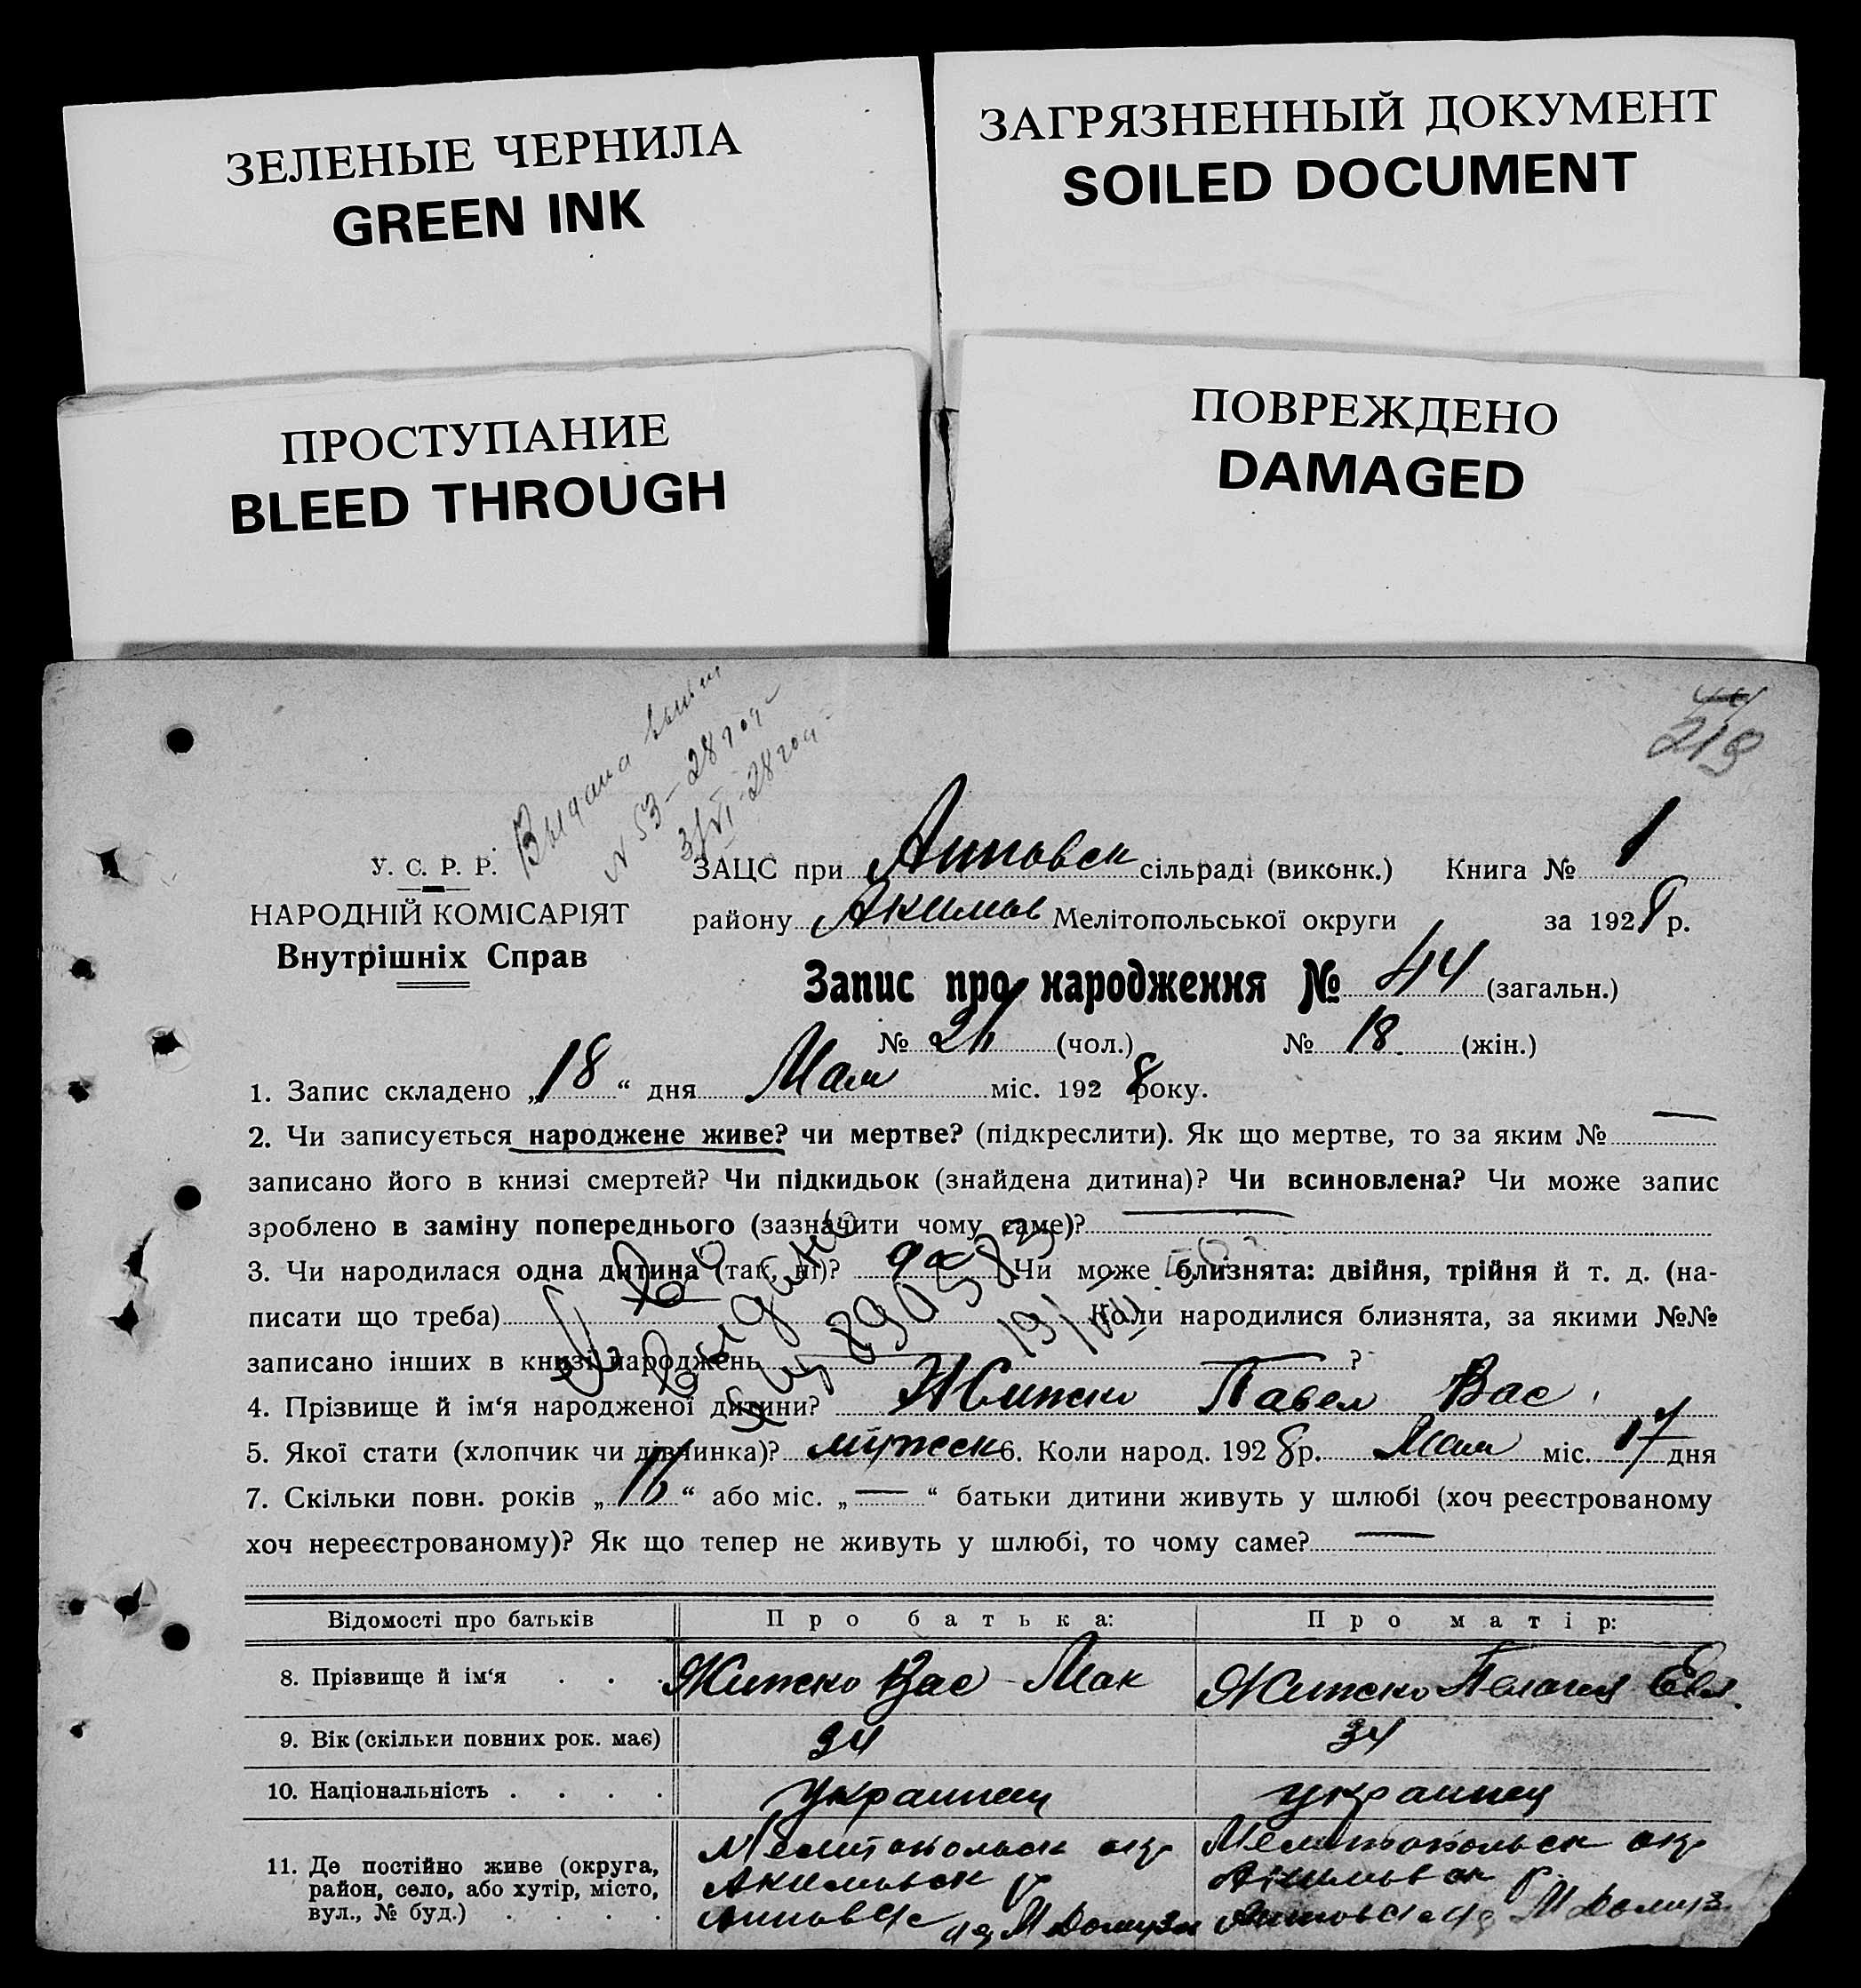 ЗЕЛЕНЫЕ ЧЕРНИЛА
GREEN INK
ЗАГРЯЗНЕННЫЙ ДОКУМЕНТ
SOILED DOCUMENT
ПРОСТУПАНИЕ
BLEED THROUGH
ПОВРЕЖДЕНО
DAMAGED
219
Выдана
N 53 – 28 год
3/VI – 28 год
У. С. Р. Р.
НАРОДНІЙ КОМІСАРІЯТ
Внутрішніх Справ
ЗАЦС при сільраді (виконк.) Книга № 1
району Акимов Мелітопольської округи за 1928 р.
Запис про народження № 44 (загальн.)
№ 26 (чол.) № 18 (жін.)
1. Запис складено „18“ дня Мая міс. 1928 року.
2. Чи записується народжене живе? чи мертве? (підкреслити). Як що мертве, то за яким № —
записано його в книзі смертей? Чи підкидьок (знайдена дитина)? Чи всиновлена? Чи може запис
зроблено в заміну попереднього (зазначити чому саме)? —
3. Чи народилася одна дитина (так, ні)? да Чи може близнята: двійня, трійня й т. д. (на-
писати що треба) Коли народилися близнята, за якими №№
записано інших в книзі народжень ?
4. Прізвище й ім‘я народженої дитини? Житско Павел Вас
5. Якої стати (хлопчик чи дівчинка)? мужск 6. Коли народ. 1928 р. Мая міс. 17 дня
7. Скільки повн. років „16“ або міс. „—“ батьки дитини живуть у шлюбі (хоч реєстрованому
хоч нереєстрованому)? Як що тепер не живуть у шлюбі, то чому саме? —
Відомості про батьків Про батька: Про матір:
8. Прізвище й ім‘я . . . Житско Вас Мак Житско Пелагея
9. Вік (скільки повних рок. має) 34 34
10. Національність . . . . украинец украинец
11. Де постійно живе (округа, район, село, або хутір, місто, вул., № буд.) . . . .
Мелитопольск окр Мелитопольск окр
Акимовск р Акимовск р